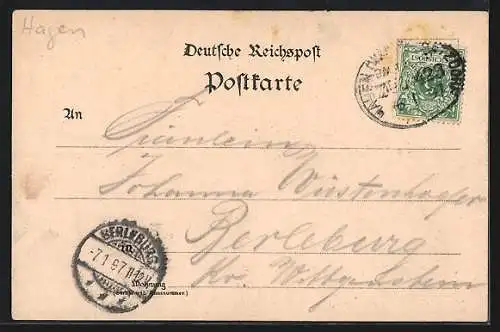 Hagen
Deutsche Reichspost
Postkarte
An
Fräulein
Johanna Wüstenhoefer
Berleburg
Kr. Wittgenstein
BERLEBURG
7 1 97
Wohnung